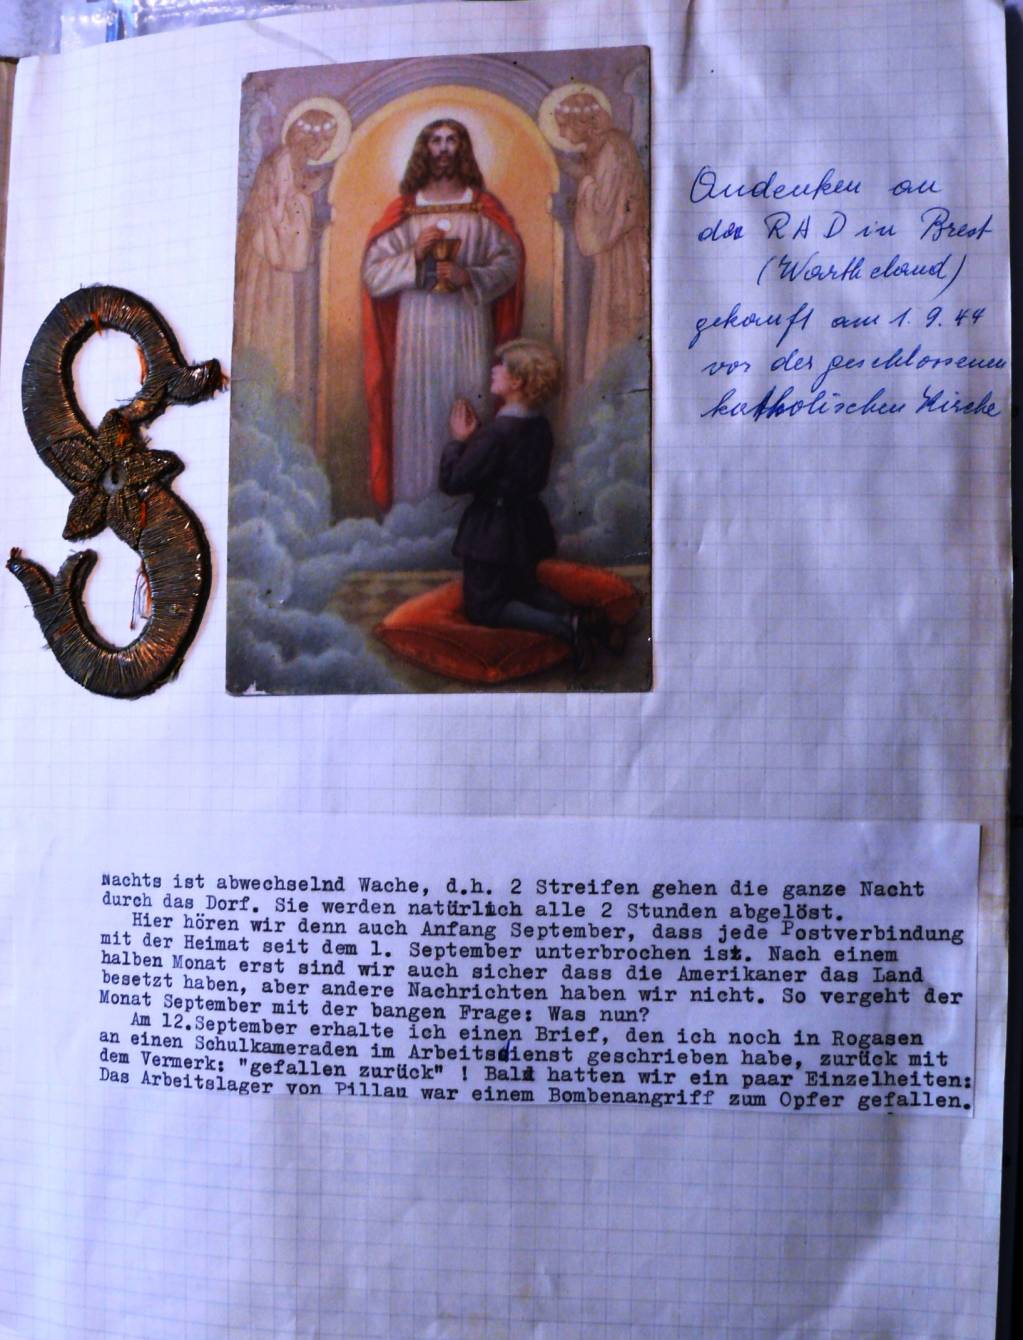 Andenken an
den RAD in Brest
(Wartheland)
gekauft am 1. 9. 44
vor der geschlossenen
katholischen Kirche
Nachts ist abwechselnd Wache, d.h. 2 Streifen gehen die ganze Nacht
durch das Dorf. Sie werden natürlich alle 2 Stunden abgelöst.
Hier hören wir denn auch Anfang September, dass jede Postverbindung
mit der Heimat seit dem 1. September unterbrochen ist. Nach einem
halben Monat erst sind wir auch sicher dass die Amerikaner das Land
besetzt haben, aber andere Nachrichten haben wir nicht. So vergeht der
Monat September mit der bangen Frage: Was nun?
Am 12.September erhalte ich einen Brief, den ich noch in Rogasen
an einen Schulkameraden im Arbeitsdienst geschrieben habe, zurück mit
dem Vermerk: "gefallen zurück" ! Bald hatten wir ein paar Einzelheiten:
Das Arbeitslager von Pillau war einem Bombenangriff zum Opfer gefallen.